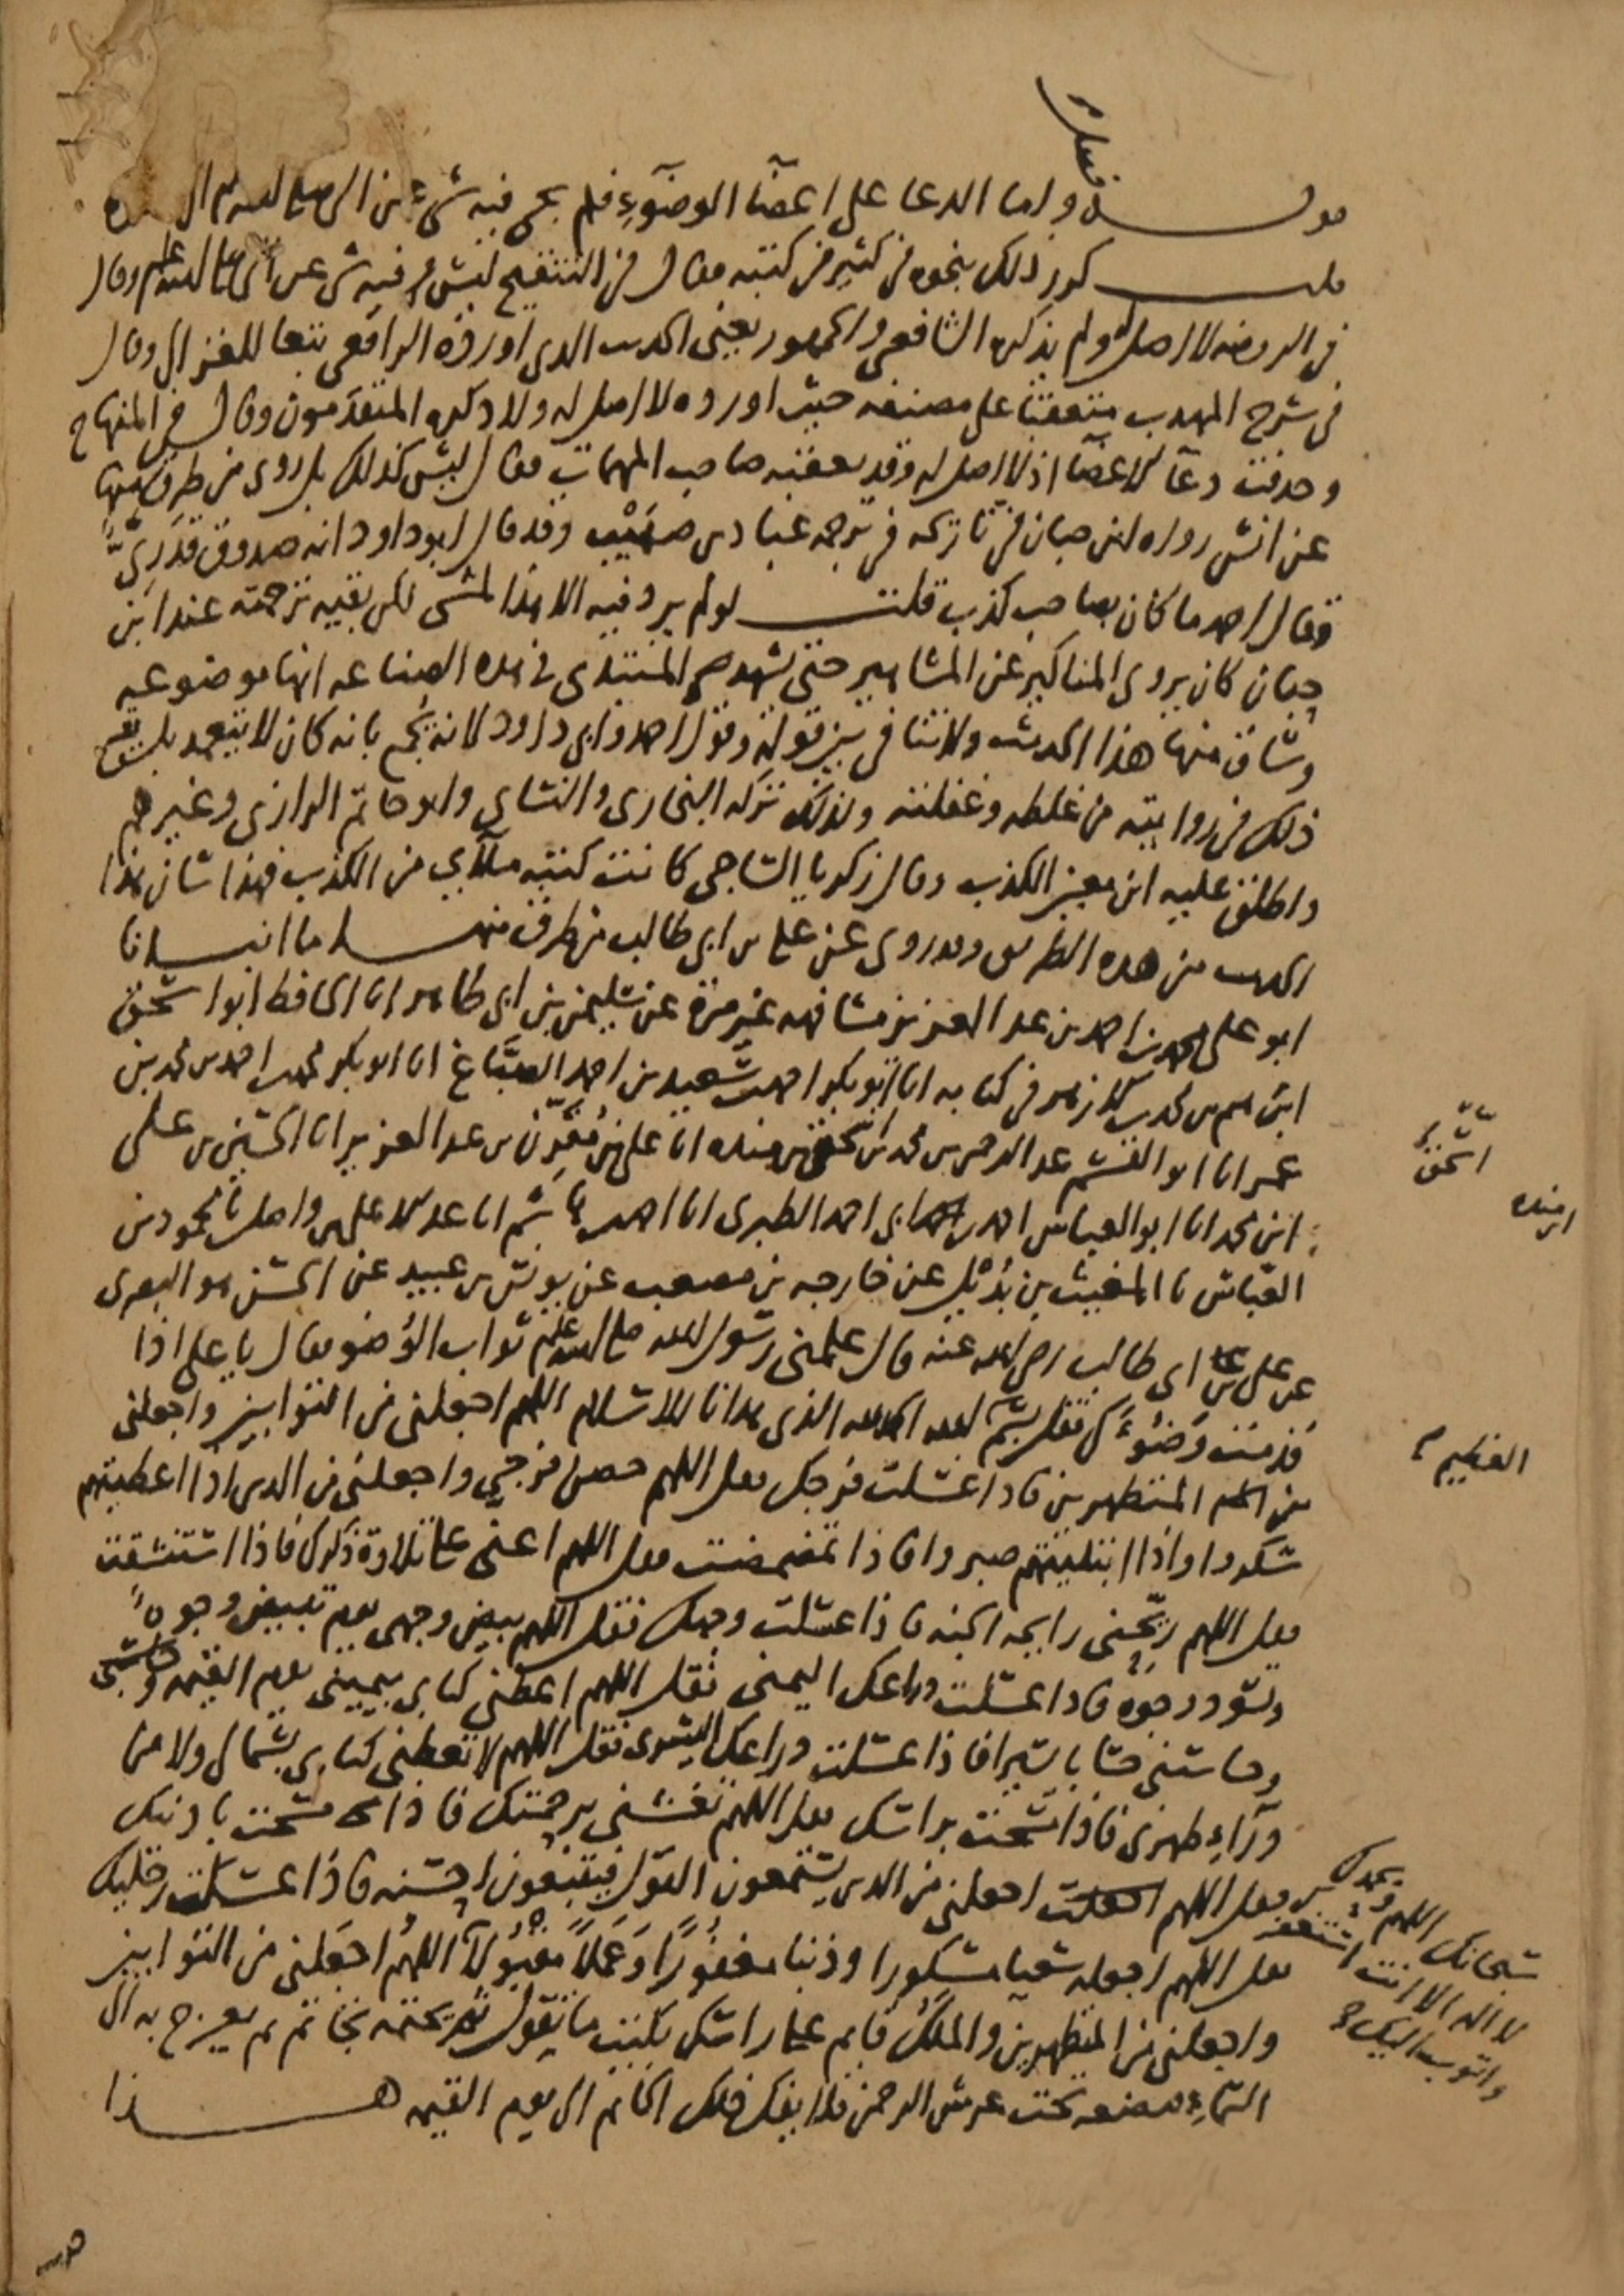 فصل
قوله واما الدعا على اعضآ الوضوءِ فلم يجى فيه شىءٌ عن النبى صلى الله عليه وسلم
قلت كرر ذلك بنحوه فى كثير من كتبه فقال فى التنقيح ليس فيه شى عن النبى صلى الله عليه وسلم وقال
فى الروضه لا اصل له ولم يذكره الشافعى والجمهور يعنى الحديث الذى اورده الرافعى تبعا للغزالى وقال
فى شرح المهذب متعقبا على مصنفه حيث اورده لا اصل له ولا ذكره المتقدمون وقال فى المنهاج
وحذفت دعآ الاعضآ اذ لا اصل له وقد تعقبه صاحب المهمات فقال ليس كذلك بل روى من طرق منها
عن انس رواه ابن حبان فى تاريخه فى ترجمه عباد بن صهيب وقد قال ابو داود انه صدوق قدرىٌّ
وقال احمد ما كان بصاحب كذب قلت لو لم يرد فيه الا هذا لمشى لكن بقيه ترجمته عند ابن
حبان كان يروى المناكير عن المشاهير حتى يشهد المبتدى فى هذه الصناعه انها موضوعه
وساق منها هذا الحديث ولا تنافى بين قوله وقول احمد وابى داود لانه يجمع بانه كان لا يتعمد بل يقع
ذلك فى روايته من غلطه وغفلته ولذلك تركه البخارى والنساى وابو حاتم الرازى وغيرهم
واطلق عليه ابن معين الكذب وقال زكريا الساجى كانت كتبه ملآى من الكذب فهذا شان هذا
الحديث من هذه الطريق وقد روى عن على بن ابى طالب من طرق منها ما انبانا
ابو على محمد بن احمد بن عبد العزيز مشافهه غير مرة عن سليمن بن ابى طاهر انا الحافظ ابو اسحق
ابرهيم بن محمد بن الازهر فى كتابه انا ابو بكر احمد بن سعيد بن احمد الصبّاغ انا ابو بكر محمد بن احمد بن محمد بن
عمر انا ابو القسم عبد الرحمن بن محمد بن اسحق بن منده انا على بن مقرّن بن عبد العزيز انا الحسين بن على
ابن محمد انا ابو العباس احمد بن ابى احمد الطبرى انا احمد بن هاشم انا عبد الاعلى بن واصل نا محمود بن
العبّاس نا المغيث بن بُدَيْل عن خارجه بن مصعب عن يونس بن عبيد عن الحسن هو البصرى
عن على بن ابى طالب رضى الله عنه قال علمنى رسول الله صلى الله عليه وسلم ثواب الوُضو فقال يا على اذا
قدمت وَضوءَك فقل بسم الله الحمد لله الذى هدانا للاسلام اللهم اجعلنى من التوابين واجعلنى
من المتطهرين فاذا غسلت فرجك فقل اللهم حصن فرجى واجعلنى من الذين اذا اعطيتهم
شكروا واذا ابتليتهم صبروا فاذا تمضمضت فقل اللهم اعنى على تلاوة ذكرك فاذا استنشقت
فقل اللهم ريّحنى رايحه الجنه فاذا غسلت وجهك فقل اللهم بيض وجهى يوم تبيض وجوهٌ
وتسود وجوه فاذا غسلت ذراعك اليمنى فقل اللهم اعطنى كتابى بيمينى يوم القيمه
وحاسبنى حسابا يسيرا فاذا غسلت ذراعك اليسرى فقل اللهم لا تعطنى كتابى بشمالى ولا من
ورآءِ ظهرى فاذا مسحت براسك فقل اللهم تغشنى برحمتك فاذا مسحت باذنيك
فقل اللهم اجعلنى من الذين يستمعون القول فيتبعون احسنه فاذا غسلت رجليك
فقل اللهم اجعله سعيا مشكورا وذنبا مغفورًا وَعَمَلاً مقبُولاً اللهُم اجعَلنى من التوابين
واجعلنى من المتطهرين والمَلَكُ قايم على راسك يكتب ما تقول ثم يختمه بخاتم ثم يعرج به الى
السّمآءِ فيضعه تحت عرش الرحمن فلا يفك ذلك الخاتم الى يوم القيمه هذا
اسحق
ابن منده
العظيم
سبحانك اللهم وبحمدك
لا اله الا انت استغفرك
واتوب اليك